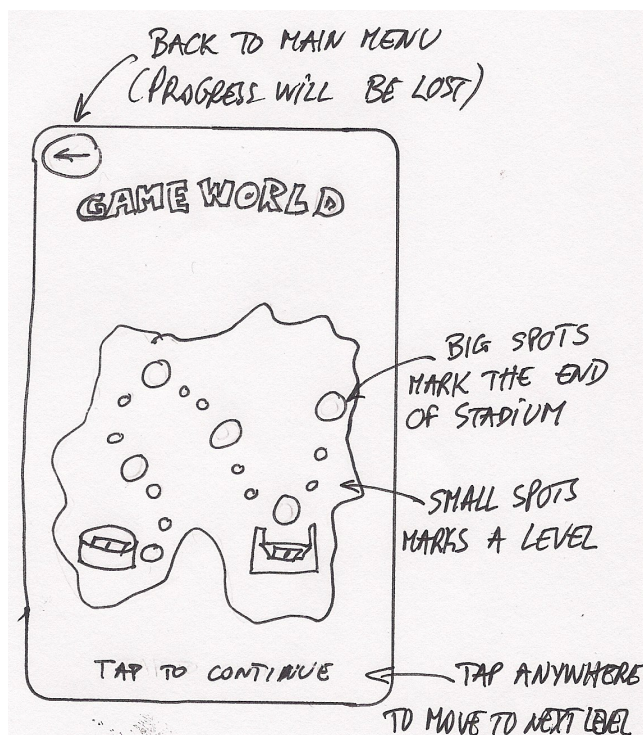 BACK TO MAIN MENU
(PROGRESS WILL BE LOST)
GAME WORLD
BIG SPOTS
MARK THE END
OF STADIUM
SMALL SPOTS
MARKS A LEVEL
TAP TO CONTINUE
TAP ANYWHERE
TO MOVE TO NEXT LEVEL